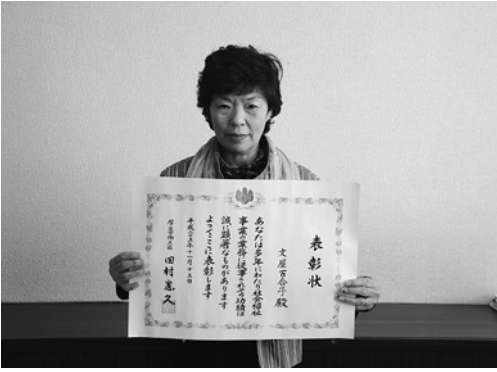 表彰状
文屋百合子殿
あなたは多年にわたり社会福祉
事業の業務に従事されその功績は
誠に顕著なものがあります
よってここに表彰します
平成二十五年十一月十五日
厚生労働大臣
田村憲久